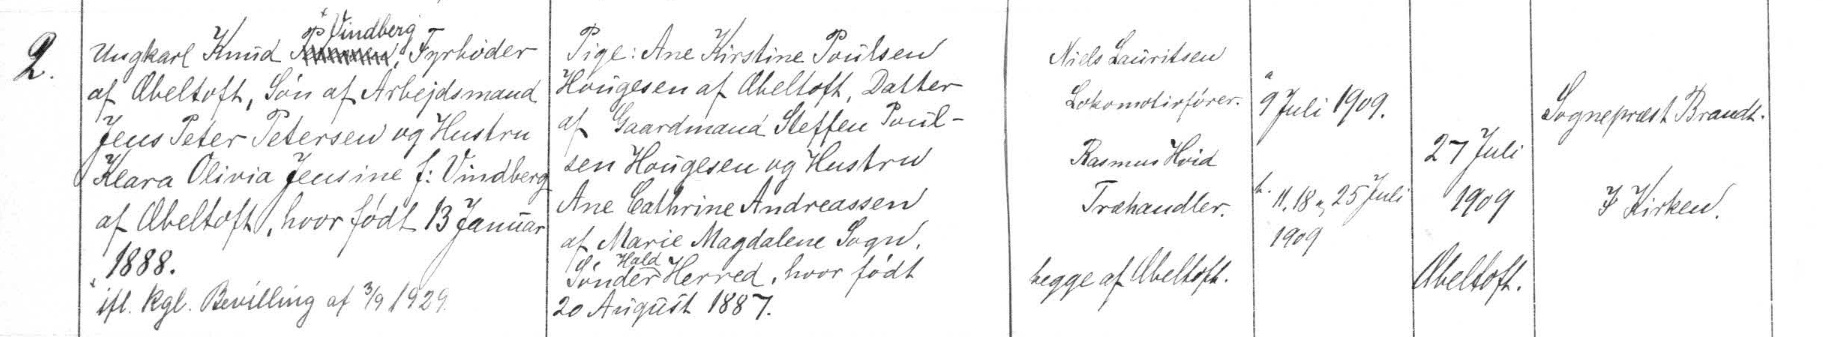 2.
x Vindberg
Ungkarl Knud Fyrbøder
af Æbeltoft, Søn af Arbejdsmand
Jens Peter Petersen og Hustru
Klara Olivia Jensine f: Vindberg
af Æbeltoft, hvor født 13 Januar
1888.
x ifl. Kgl. Bevilling af 3/9 1929.
Pige: Ane Kirstine Poulsen
Hougesen af Æbeltoft, Datter
af Gaardmand Steffen Poul-
sen Hougesen og Hustru
Ane Cathrine Andreassen
af Marie Magdalene Sogn,
Sønder Hald Herred, hvor født
20 August 1887.
Niels Lauritsen
Lokomotivfører.
Rasmus Hvid
Træhandler.
begge af Æbeltoft.
a
9 Juli 1909.
b. 11, 18 og 25 Juli
1909
27 Juli
1909
Æbeltoft.
Sognepræst Brandt.
I Kirken.